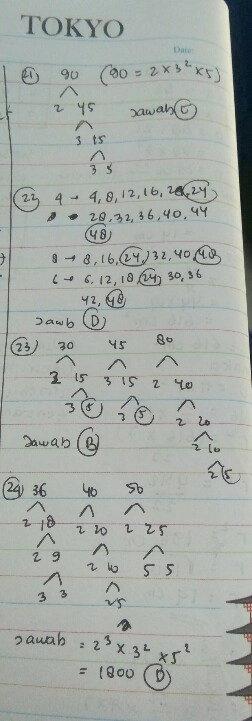 TOKYO
Date:
21 90 (90 = 2 × 3² × 5)
2 45 Jawab C
3 15
3 5
22 4 → 4, 8, 12, 16, 20, 24
28, 32, 36, 40, 44
48
8 → 8, 16, 24, 32, 40, 48
6 → 6, 12, 18, 24, 30, 36
42, 48
Jawb D
23 30 45 80
2 15 3 15 2 40
3 5 3 5 2 20
Jawab B 2 10
2 5
24 36 40 50
2 18 2 20 2 25
2 9 2 10 5 5
3 3 2 5
Jawab = 2³ × 3² × 5²
= 1800 D